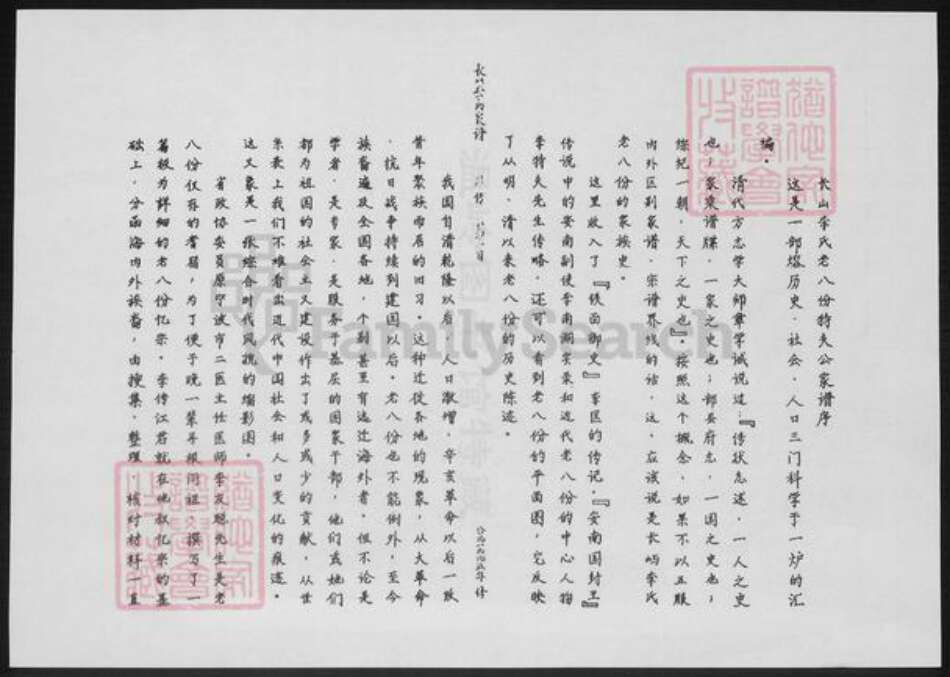 长山李氏老八份特夫公家谱序
这是一部熔历史、社会、人口三门科学于一炉的汇
编。
清代方志学大师章学诚说过：『传状志述，一人之史
也；家乘谱牒，一家之史也；部委府志，一国之史也；
综纪一朝，天下之史也』。按照这个概念，如果不以五服
内外区别家谱、宗谱界线的话，这，应该说是长山李氏
老八份的家族史。
这里收入了『铁面御史』李匡的传记，『安南国封王』
传说中的安南副使李南湖实录和近代老八份的中心人物
李特夫先生传略，还可以看到老八份的平面图，它反映
了从明、清以来老八份的历史陈迹。
长山 家谱
我国自清乾隆以后，人口激增，辛亥革命以后一改
昔年聚族而居的旧习。这种迁徙各地的现象，从大革命
、抗日战争持续到建国以后。老八份也不能例外，至今
族裔遍及全国各地，个别甚至有远迁海外者，但不论是
学者、是专家、是服务于基层的国家干部，他们或她们
都为祖国的社会主义建设作出了或多或少的贡献，从世
系表上我们不难看出近代中国社会和人口变化的痕迹。
这又象是一张综合时代风貌的缩影图。
省政协委员原宁波市二医主任医师李友聪先生是老
八份仅存的耆宿，为了便于晚一辈寻根问祖，撰写了一
篇极为详细的老八份忆录。李传江君就在他叔忆录的基
础上，分函海内外族裔，由搜集、整理、核对材料一直
FamilySearch